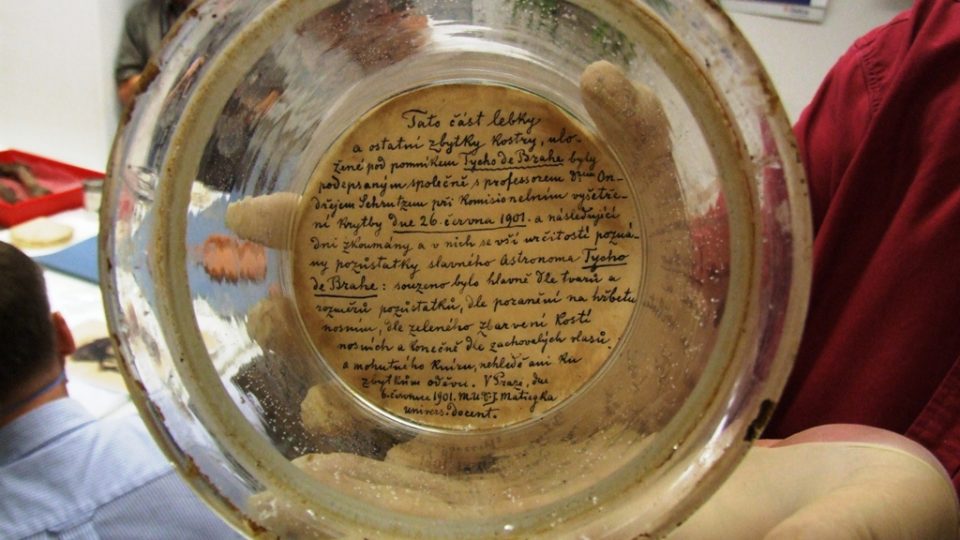 Tato část lebky
a ostatní zbytky kostry, ulo-
žené pod pomníkem Tycho de Brahe byly
podepsaným společně s professorem Drem On-
dřejem Schrutzem při komisionelním vyšetře-
ní krytby dne 26. června 1901. a následující
dni zkoumány a v nich se vší určitostí pozná-
ny pozůstatky slavného Astronoma Tycho
de Brahe: souzeno bylo hlavně dle tvarů a
rozměrů pozůstatků, dle poranění na hřbetu
nosním, dle zeleného zbarvení kostí
nosních a konečně dle zachovalých vlasů
a mohutného kníru, nehledě ani ku
zbytkům oděvu. V Praze, dne
6. července 1901. MUDr J. Matiegka
univers. docent.